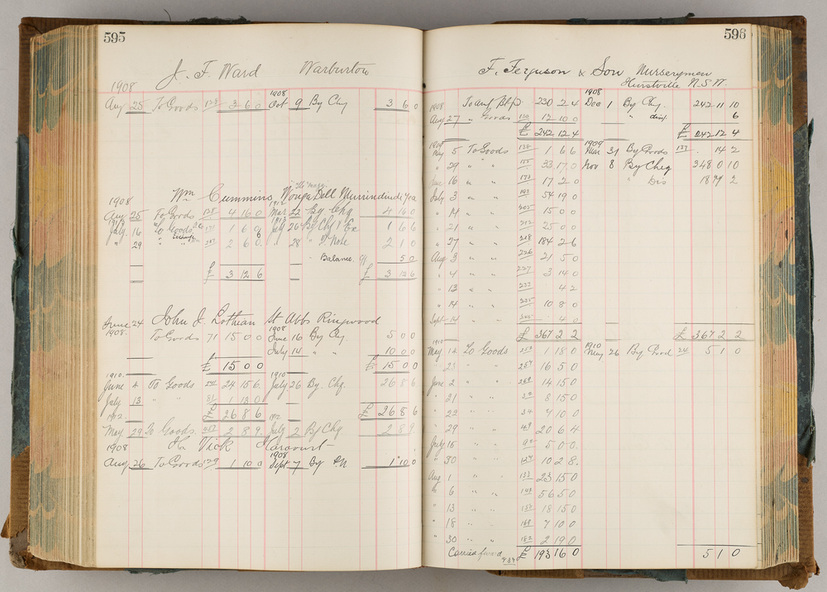 595
J. F. Ward Warburton
1908
Aug 25 To Goods 3 6 0 1908 Oct 9 By Chq 3 6 0
Wm Cummins Wonga Dell Murrindindi
1908
Aug 25 To Goods 4 16 0 Mar 22 By Chq 4 16 0
July 16 " Goods 1 6 6 July 26 By Chq 1 6 6
" 29 2 6 0 " 28 " P Note 2 1 0
" Balance 5 0
£ 3 12 6 £ 3 12 6
June 24 John J. Lothean St Abbs Ringwood
1908 To Goods 71 15 0 0 1908 June 16 By Chq 5 0 0
July 14 " " 10 0 0
£ 15 0 0 £ 15 0 0
1910 1910
June 4 To Goods 24 15 6 July 26 By Chq 26 8 6
July 13 " " 1 13 0
£ 26 8 6 £ 26 8 6
May 29 To Goods 2 8 9 July 2 By Chq 2 8 9
Vick Harcourt
1908
Aug 26 To Goods 1 10 0 1908 Sept 7 By PN 1 10 0
596
F. Ferguson & Son Nurserymen
Hurstville N.S.W.
1908 To amt 230 2 4 1908 Dec 1 By Chq 242 11 10
Aug 27 " Goods 12 10 0 " dist 6
£ 242 12 4 £ 242 12 4
1909
May 5 To Goods 1 6 6 1909 Mar 31 By Goods 14 2
" 29 " " 33 17 0 Nov 8 By Chq 348 0 10
June 16 " " 17 2 0 " Dis 18 7 2
July 3 " " 54 19 0
" 14 " " 15 0 0
" 21 " " 25 0 0
" 27 " " 184 2 6
Aug 3 " " 21 5 0
" 4 " " 3 14 0
" 13 " " 4 2
" 14 " " 10 8 0
Sept 14 " " 4 0
£ 367 2 2 £ 367 2 2
1910 1910
May 14 To Goods 1 18 0 May 26 By Prod 5 1 0
" 21 " " 16 5 0
June 2 " " 14 15 0
" 21 " " 8 15 0
" 22 " " 7 10 0
" 29 " " 20 6 4
July 18 " " 5 0 0
" 30 " " 10 2 8
Aug 1 " " 23 15 0
" 6 " " 56 5 0
" 13 " " 18 15 0
" 18 " " 7 10 0
" 30 " " 2 19 0
Carried forwd £ 193 16 0 5 1 0